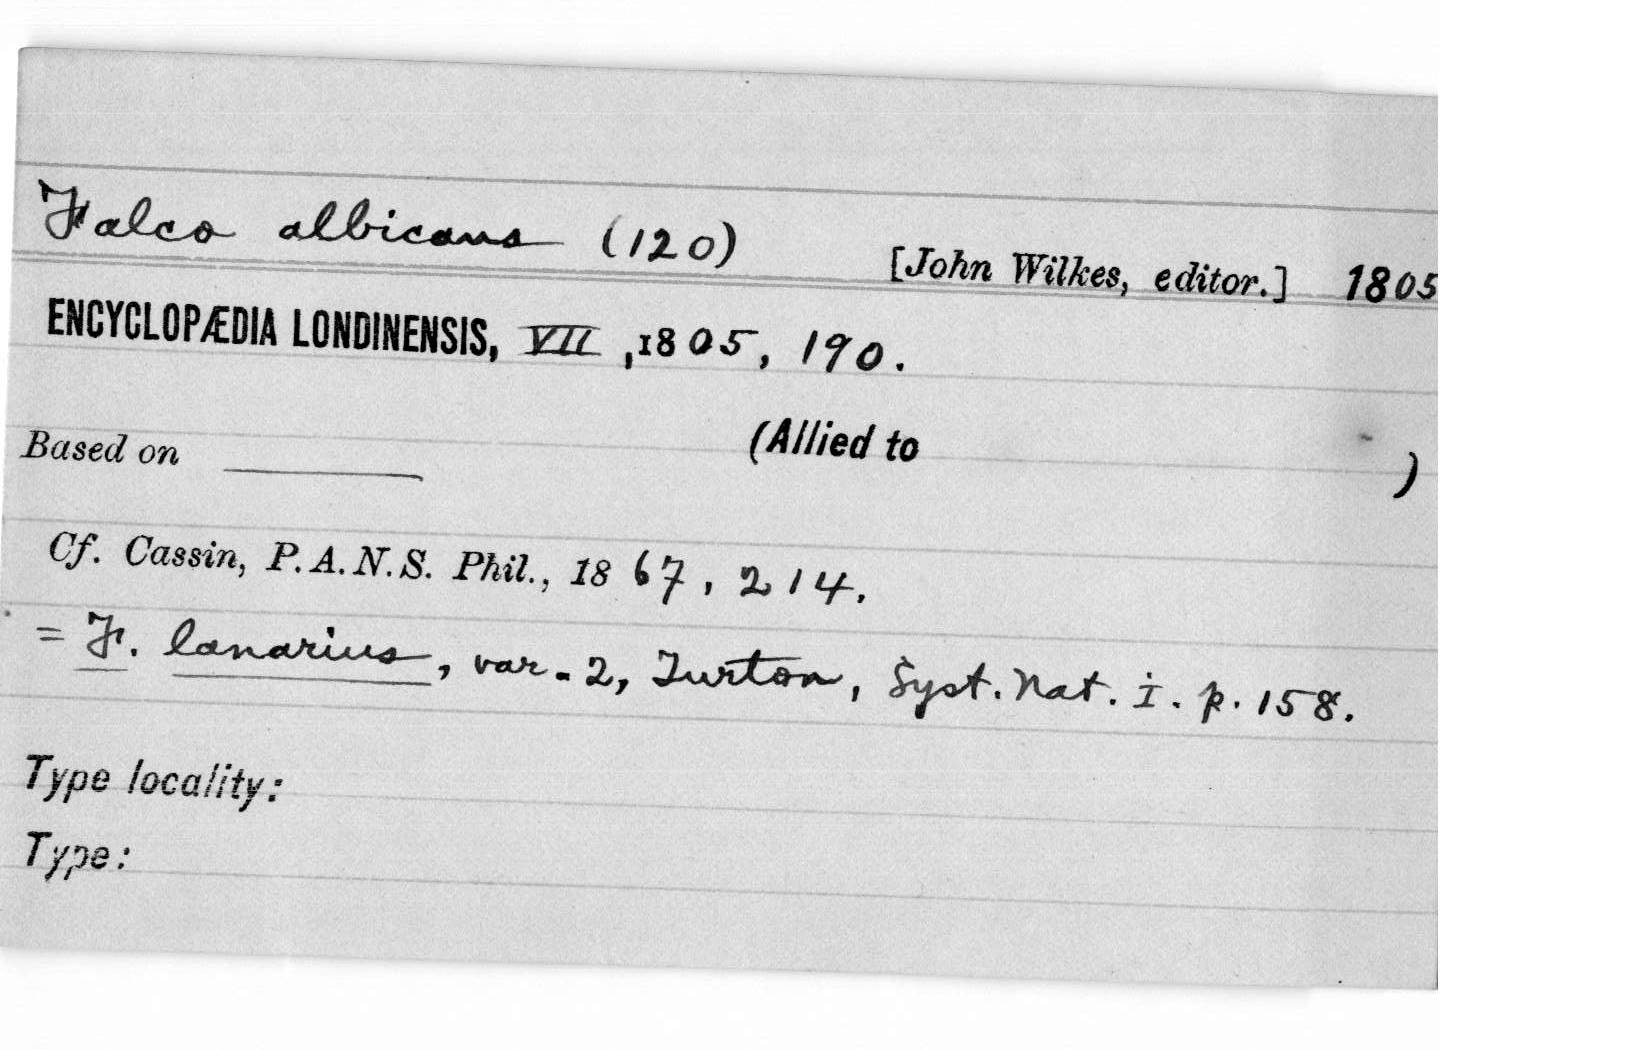 Falco albicans (120) [John Wilkes, editor.] 1805
ENCYCLOPÆDIA LONDINENSIS, VII, 1805, 190.
Based on ______ (Allied to )
Cf. Cassin, P.A.N.S. Phil., 1867, 214.
= F. lanarius, var. 2, Turton, Syst. Nat. i. p. 158.
Type locality:
Type: